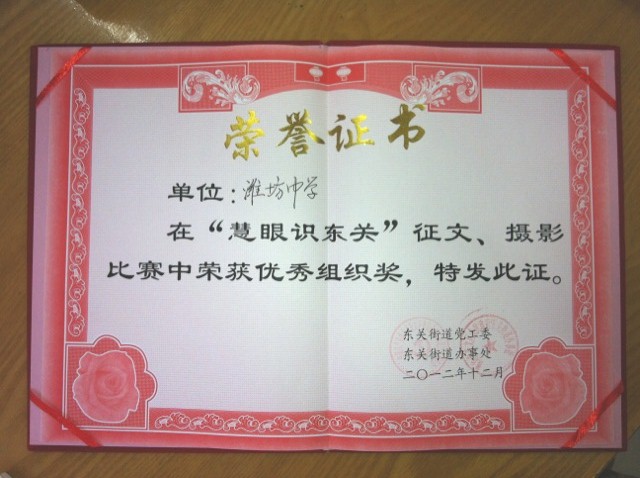 荣誉证书
单位:潍坊中学
在“慧眼识东关”征文、摄影
比赛中荣获优秀组织奖，特发此证。
东关街道党工委
东关街道办事处
二〇一二年十二月